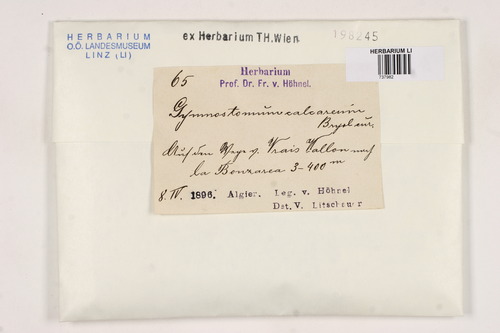 HERBARIUM
O.Ö. LANDESMUSEUM
LINZ (LI)
ex Herbarium TH.Wien
198245
HERBARIUM LI
737982
65
Herbarium
Prof. Dr. Fr. v. Höhnel.
Gymnostomum calcareum
Bryol eur.
Auf dem Wege v. Vrais Vallon nach
la Bouzarea 3-400 m
8. IV. 1896. Algier. Leg. v. Höhnel
Det. V. Litschauer